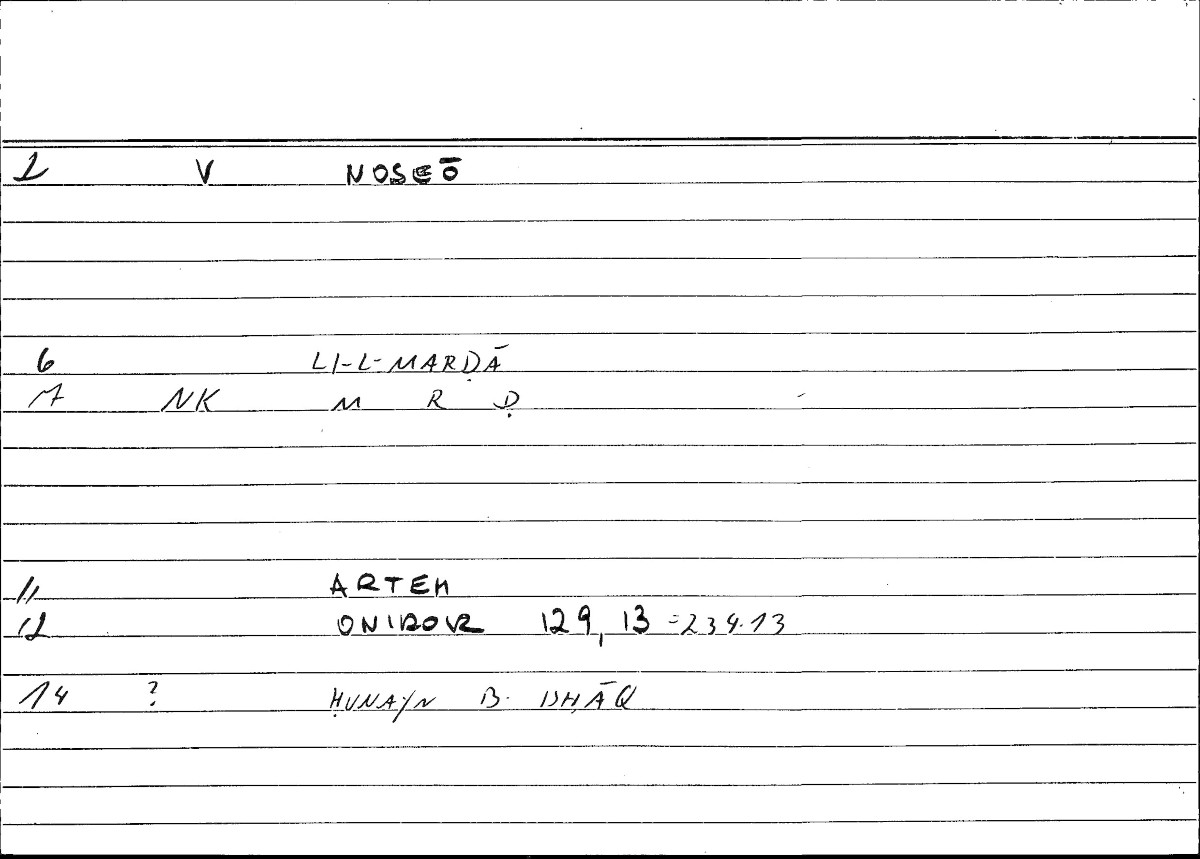 1 V NOSEŌ
6 LI-L-MARḌĀ
7 NK M R Ḍ
11 ARTEM
12 ONIROKR 129, 13 =234.13
14 ? ḤUNAYN B. ISḤĀQ